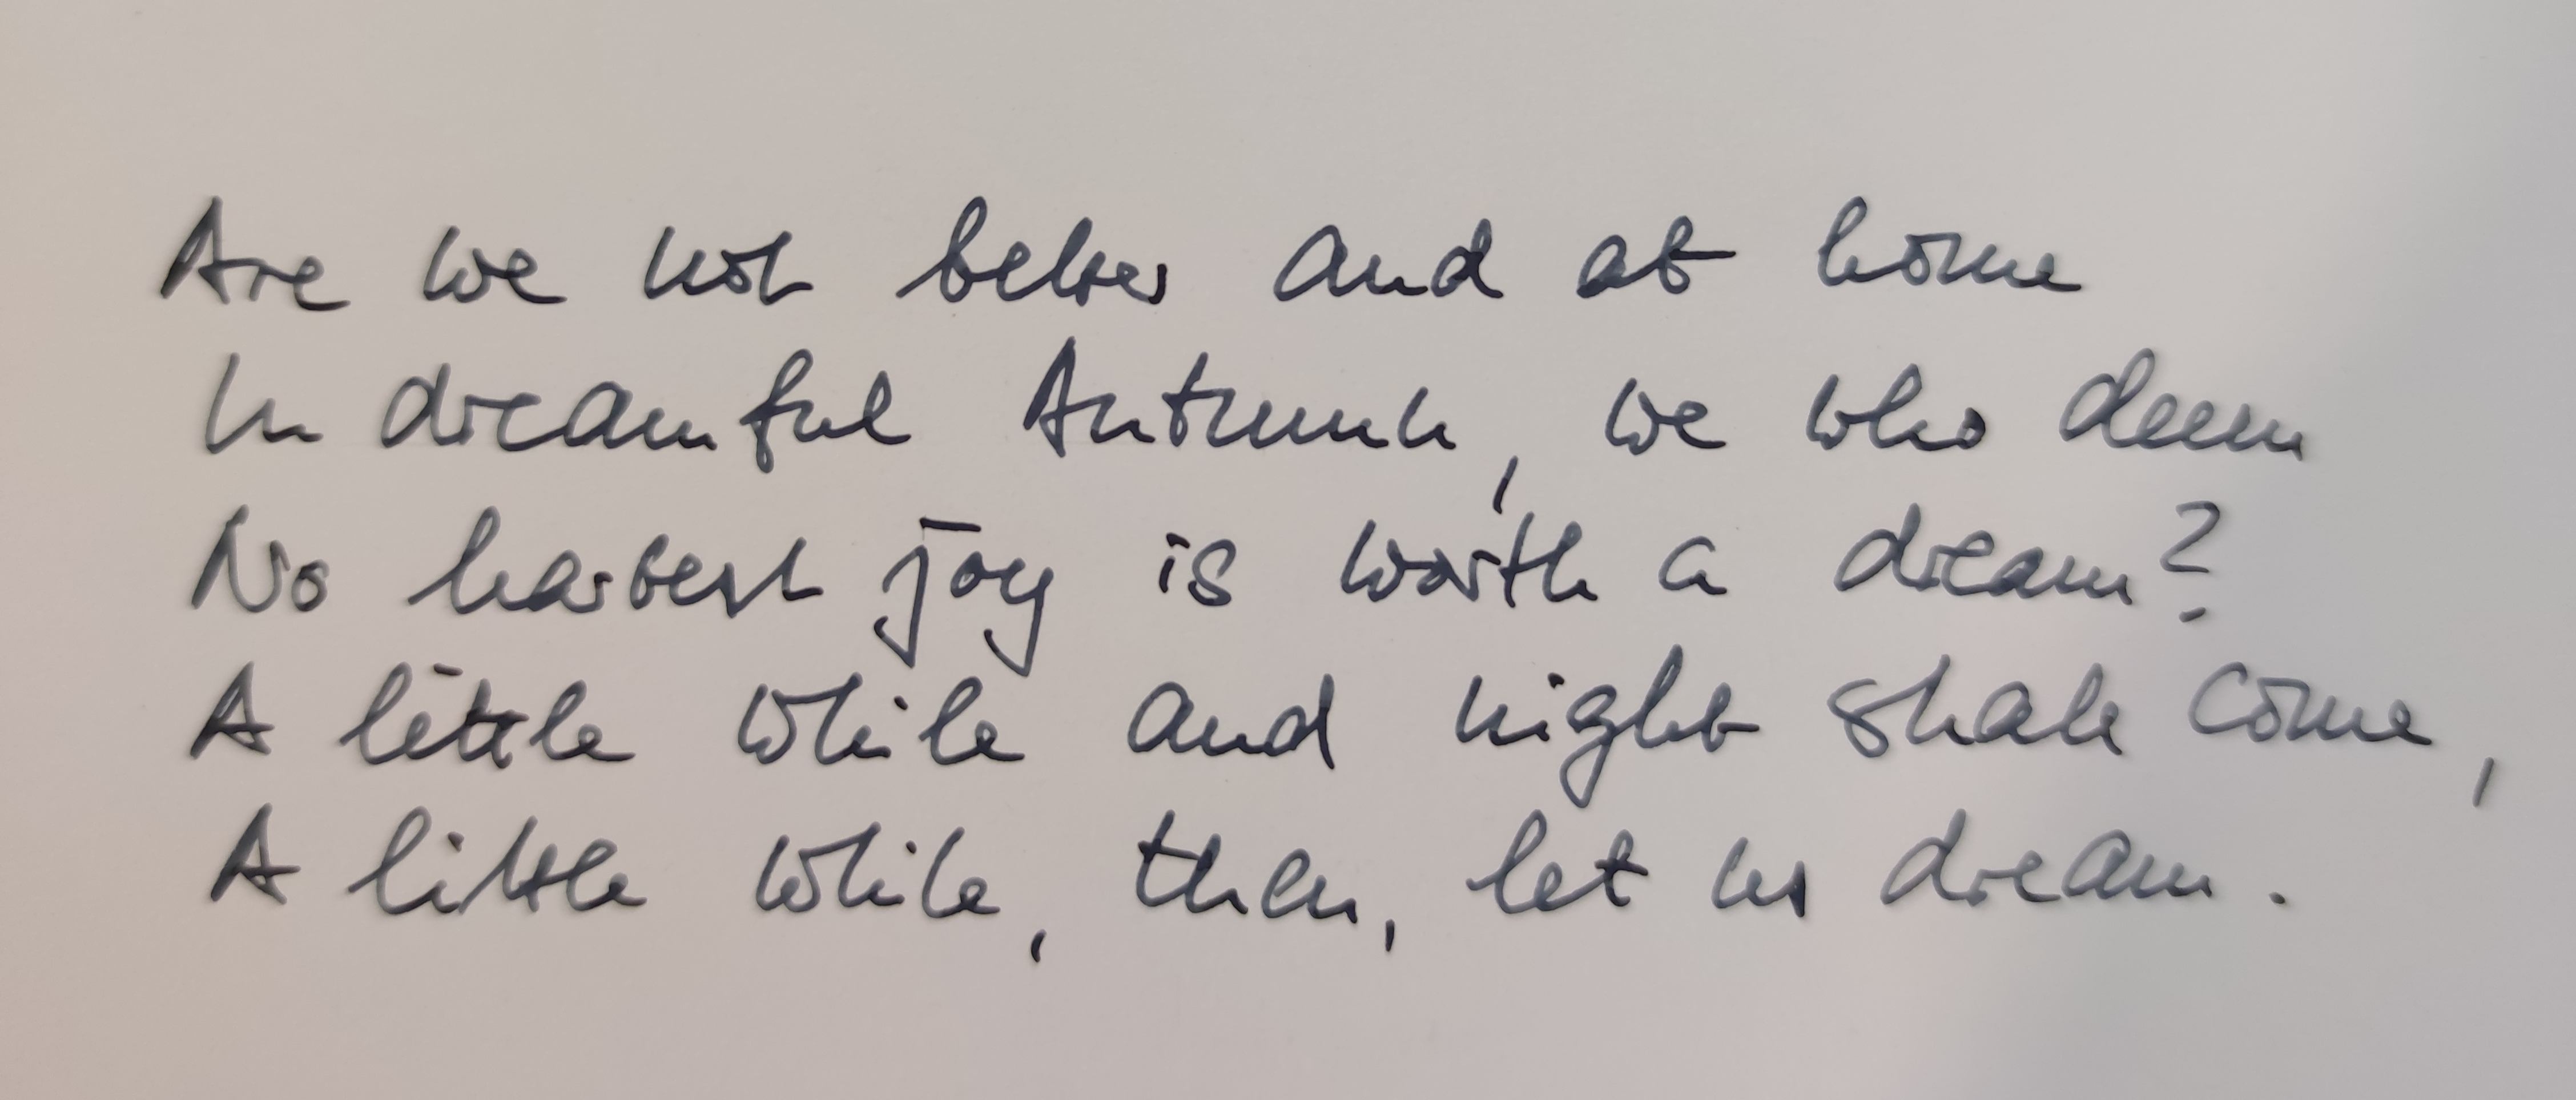 Are we not better and at home
In dreamful Autumn, we who deem
No harvest joy is worth a dream?
A little while and night shall come,
A little while, then, let us dream.